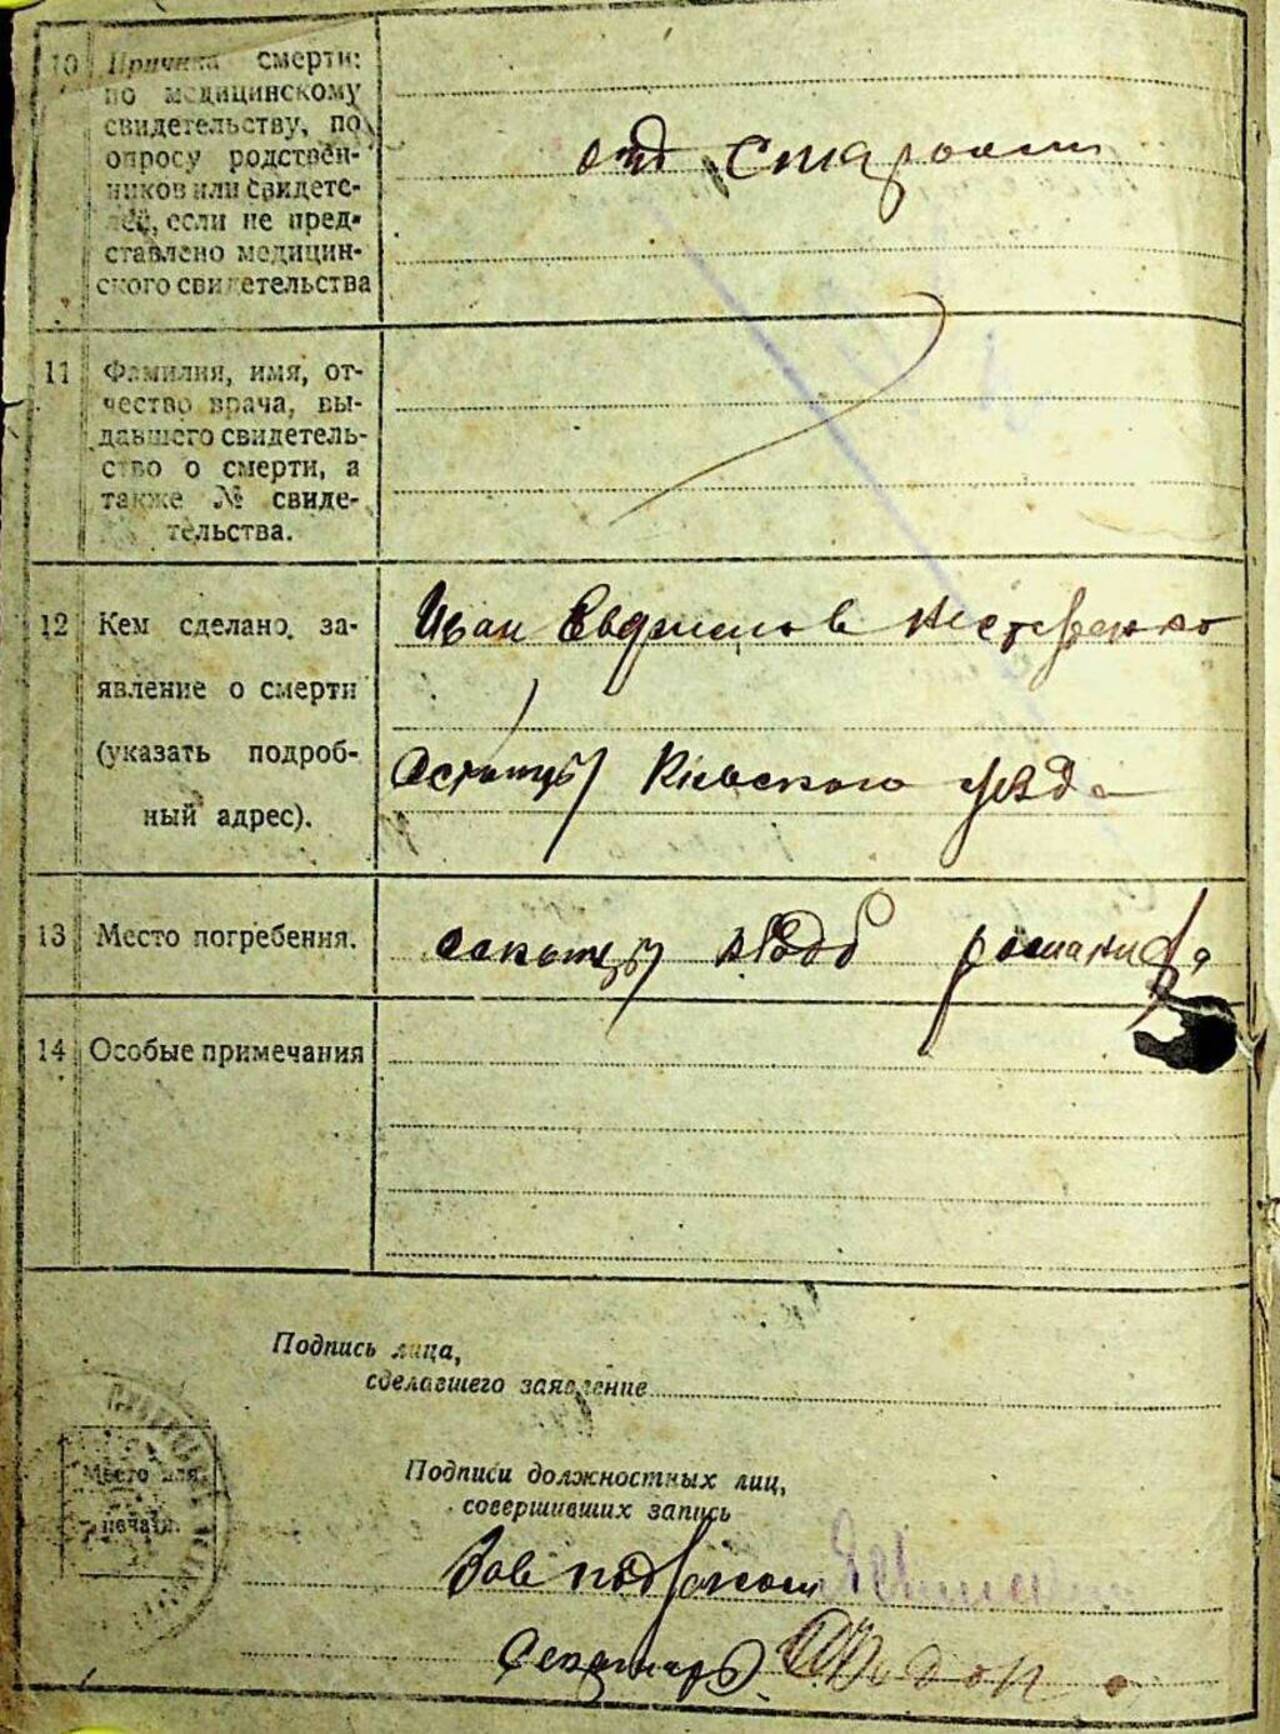 10 Причина смерти:
по медицинскому
свидетельству, по
опросу родствен-
ников или свидете-
лей, если не пред-
ставлено медицин-
ского свидетельства
от старости
11 Фамилия, имя, от-
чество врача, вы-
давшего свидетель-
ство о смерти, а
также № свиде-
тельства.
12 Кем сделано за-
явление о смерти
(указать подроб-
ный адрес).
Иван Нестеренко
Киевского уезда
13 Место погребения.
14 Особые примечания
Подпись лица,
сделавшего заявление
Место для
печати.
Подписи должностных лиц,
совершивших запись
Зав
Секретарь